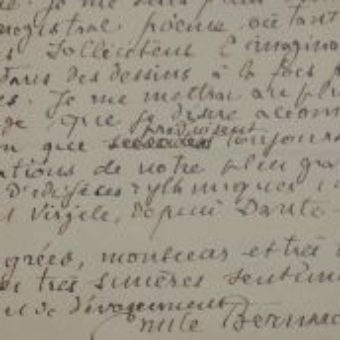 magistral poème, où tant
sollicitent l'imagina
dans des dessins à la fois
es. Je me mettrai au plu
ge que je désire accom
produisent
en que toujours
ations de notre plus gra
d'idylles rythmiques
Virgile, depuis Dante
agréez, monsieur et très
très sincères sentime
et de dévouement
Emile Bernard